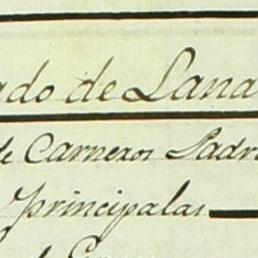 ado de Lana
de Carneros Padr
Principalas